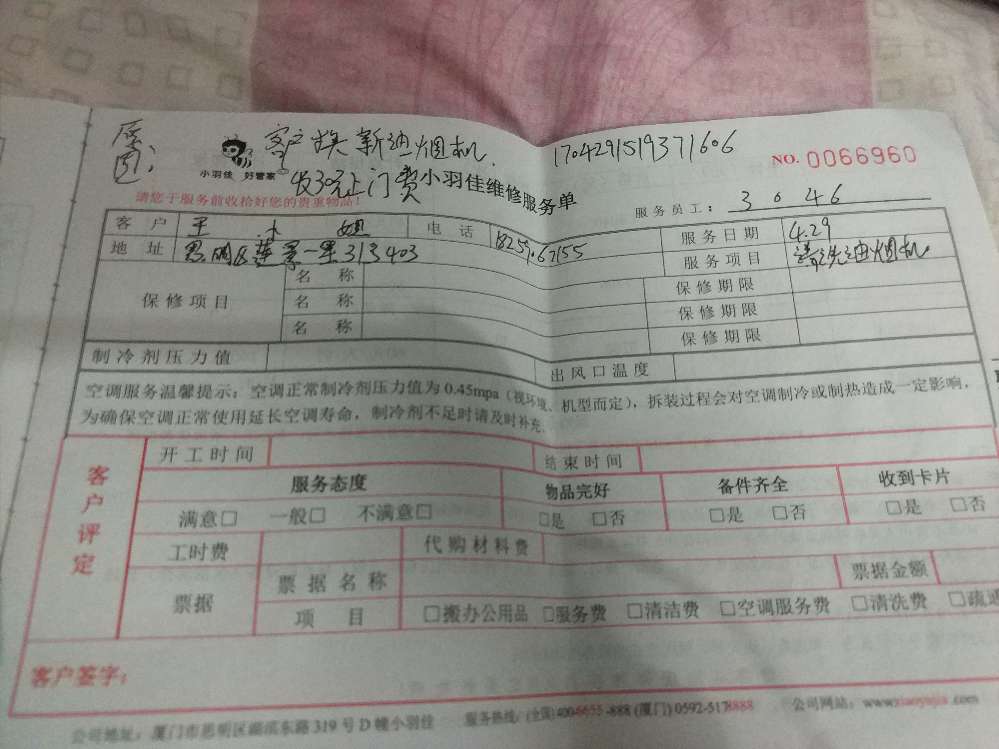 客户换新油烟机. 1704291519371606
小羽佳 好管家 NO. 0066960
收30元上门费 小羽佳维修服务单
请您于服务前收拾好您的贵重物品！ 服务员工： 3046
客户 王小姐 电话 服务日期 4.29
地址 服务项目 清洗油烟机
保修项目 名称 保修期限
名称 保修期限
名称 保修期限
制冷剂压力值 出风口温度
空调服务温馨提示：空调正常制冷剂压力值为0.45mpa（视环境、机型而定），拆装过程会对空调制冷或制热造成一定影响，
为确保空调正常使用延长空调寿命，制冷剂不足时请及时补充。
客户评定
开工时间 结束时间
服务态度 物品完好 备件齐全 收到卡片
满意□ 一般□ 不满意□ □是 □否 □是 □否 □是 □否
工时费 代购材料费
票据 票据名称 票据金额
项目 □搬办公用品 □服务费 □清洁费 □空调服务费 □清洗费 □疏通
客户签字：
公司地址：厦门市思明区湖滨东路319号D幢小羽佳 服务热线：(全国)400-6655-888 (厦门) 0592-5178888 公司网站：www.xiaoyujia.com